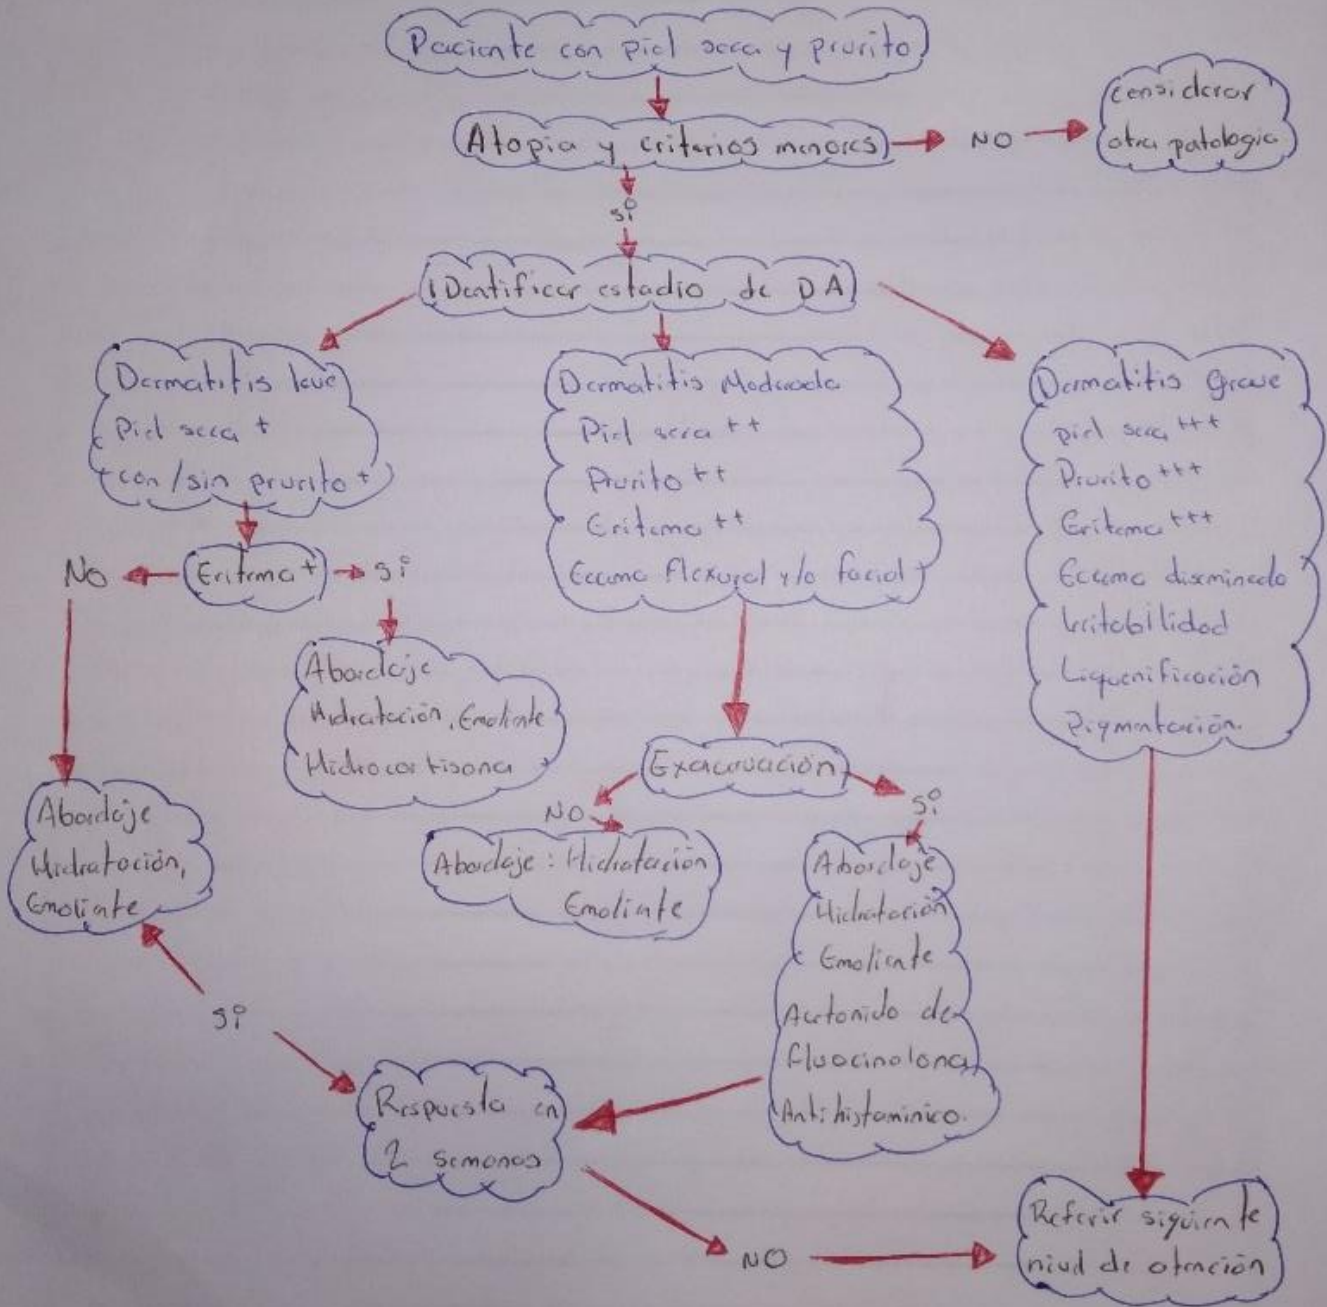 Paciente con piel seca y prurito
Atopia y criterios menores
NO
considerar
otra patologia
si
IDentificar estadio de DA
Dermatitis leve
Piel seca +
con/sin prurito +
Dermatitis Moderada
Piel seca ++
Prurito ++
Eritema ++
Eccema flexural y/o facial
Dermatitis Grave
piel seca +++
Prurito +++
Eritema +++
Eccema diseminado
Irritabilidad
Liquenificación
Pigmentación.
NO
Eritema +
si
Abordaje
Hidratación, Emoliente
Hidrocortisona
Exacervación
NO
si
Abordaje
Hidratación,
Emoliente
Abordaje: Hidratación
Emoliente
Abordaje
Hidratación
Emoliente
Acetonido de
fluocinolona
Antihistaminico.
si
Respuesta en
2 semanas
NO
Referir siguiente
nivel de atención